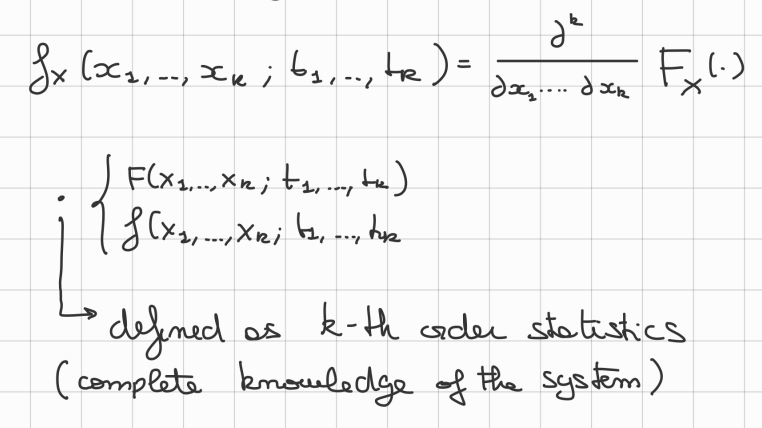 f_X (x_1,..,x_k ; t_1,..,t_k) = ∂^k / ∂x_1.... ∂x_k F_X(.)
F(x_1,..,x_k ; t_1,...,t_k)
f(x_1,...,x_k ; t_1,...,t_k
defined as k-th order statistics
(complete knowledge of the system)